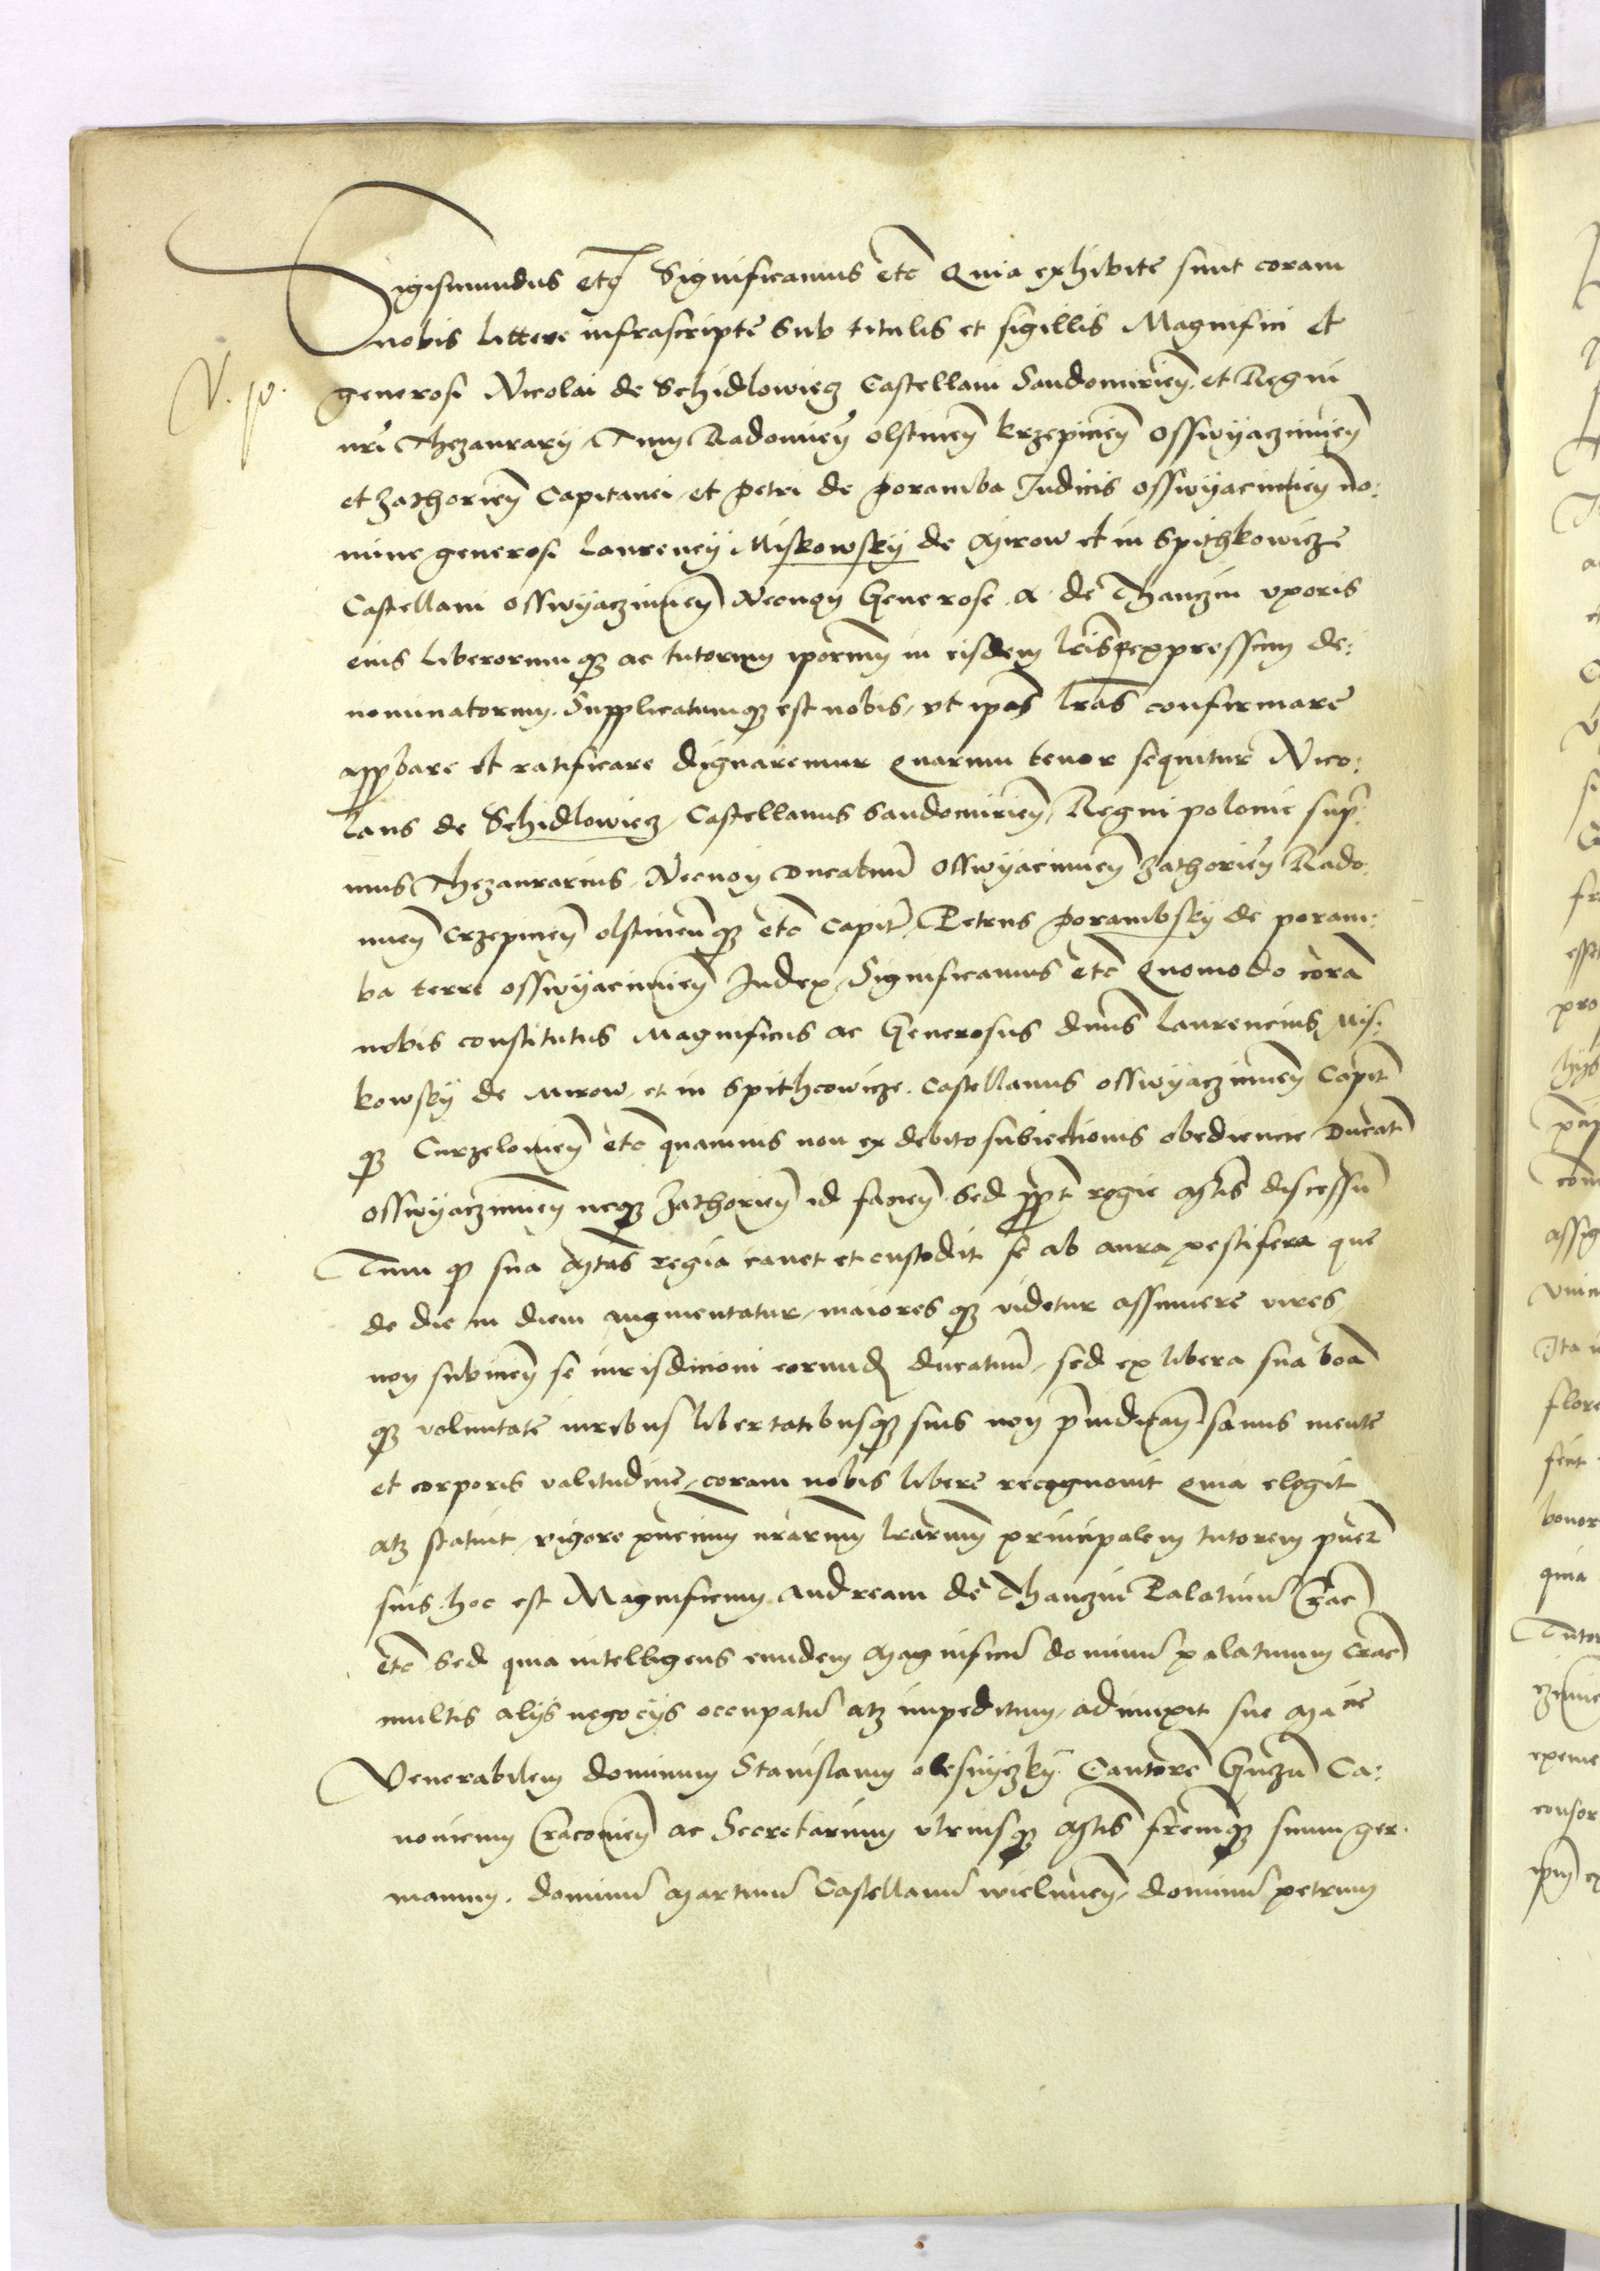 Sigismundus etc Significamus etc Quia exhibite sunt coram
nobis littere infrascripte sub titulis et sigillis Magnifici et
generosi Nicolai de Schidlowiecz Castellani Sandomirien̄ et Regni
nr̄i Thezaurarij Tum Radomien̄ olstinen̄ krzepicien̄ osswyaczimien̄
et Zathorien̄ Capitanei et petri de poramba Judicis osswyacimien̄ no:
mine generosi laurencij Miskowsky de Mirow et in Spithkowicze
Castellani osswyaczimien̄ Necnon Generose A de Thanczin vxoris
eius liberorumqꝫ ac tutorum ip̄orum in eisdem lr̄is expressim de:
nominatorum. Supplicatumqꝫ est nobis, vt ip̄as lr̄as confirmare
approbare et ratificare dignaremur Quarum tenor sequitur Nico:
laus de Schidlowiecz, Castellanus Sandomirien̄, Regni polonie supr̄:
mus Thezaurarius, Necnon Ducatuum̄ osswyacimien̄ Zathorien̄ Rado:
mien̄ Crzepicien̄ olstinen̄qꝫ etc Capit̄, Petrus porambsky de poram:
ba terre osswyacimien̄ Judex, Significamus etc Quomodo corā
nobis constitutus Magnificus ac Generosus dn̄us laurencius Mis:
kowsky de Mirow, et in Spithcowicze. Castellanus osswyaczimien̄ Capit̄
qꝫ Curzelovien̄ etc quamuis non ex debito subiectionis obediencie Ducat̄
osswyaczimien̄ neqꝫ Zathorien̄ id facien̄ Sed ꝓpt̄ regie Mt̄is discessū
Tum qꝫ sua Mt̄as regia cauet et custodit se ab aura pestifera que
de die in diem augmentatur, maiores qꝫ videtur assumere vires,
non subicien̄ se iurisdicioni eorund̄ ducatuum̄, sed ex libera sua bona
qꝫ voluntate iuribus libertatibusqꝫ suis non p̄iudican̄ sanus mente
et corporis valitudine, coram nobis libere recognouit Quia elegit
atqꝫ statuit, vigore pn̄cium nr̄arum lr̄arum principalem tutorem puer̄
suis, hoc est Magnificum Andream de Thanczin Palatinū Crac̄
etc Sed quia intelligens eundem Magnificū dominū palatinum Crac̄
multis alijs negocijs occupatū atqꝫ impeditum, adiunxit sue Ma^cie
Venerabilem dominum Stanislaum olesnyczky Cantorē Gnezn̄ Ca:
nonicum Cracouien̄ ac Secretarium vtriusqꝫ Mt̄is fr̄emqꝫ suum ger:
manum, dominū Martinū Castellanū wielunen̄, dominū petrum